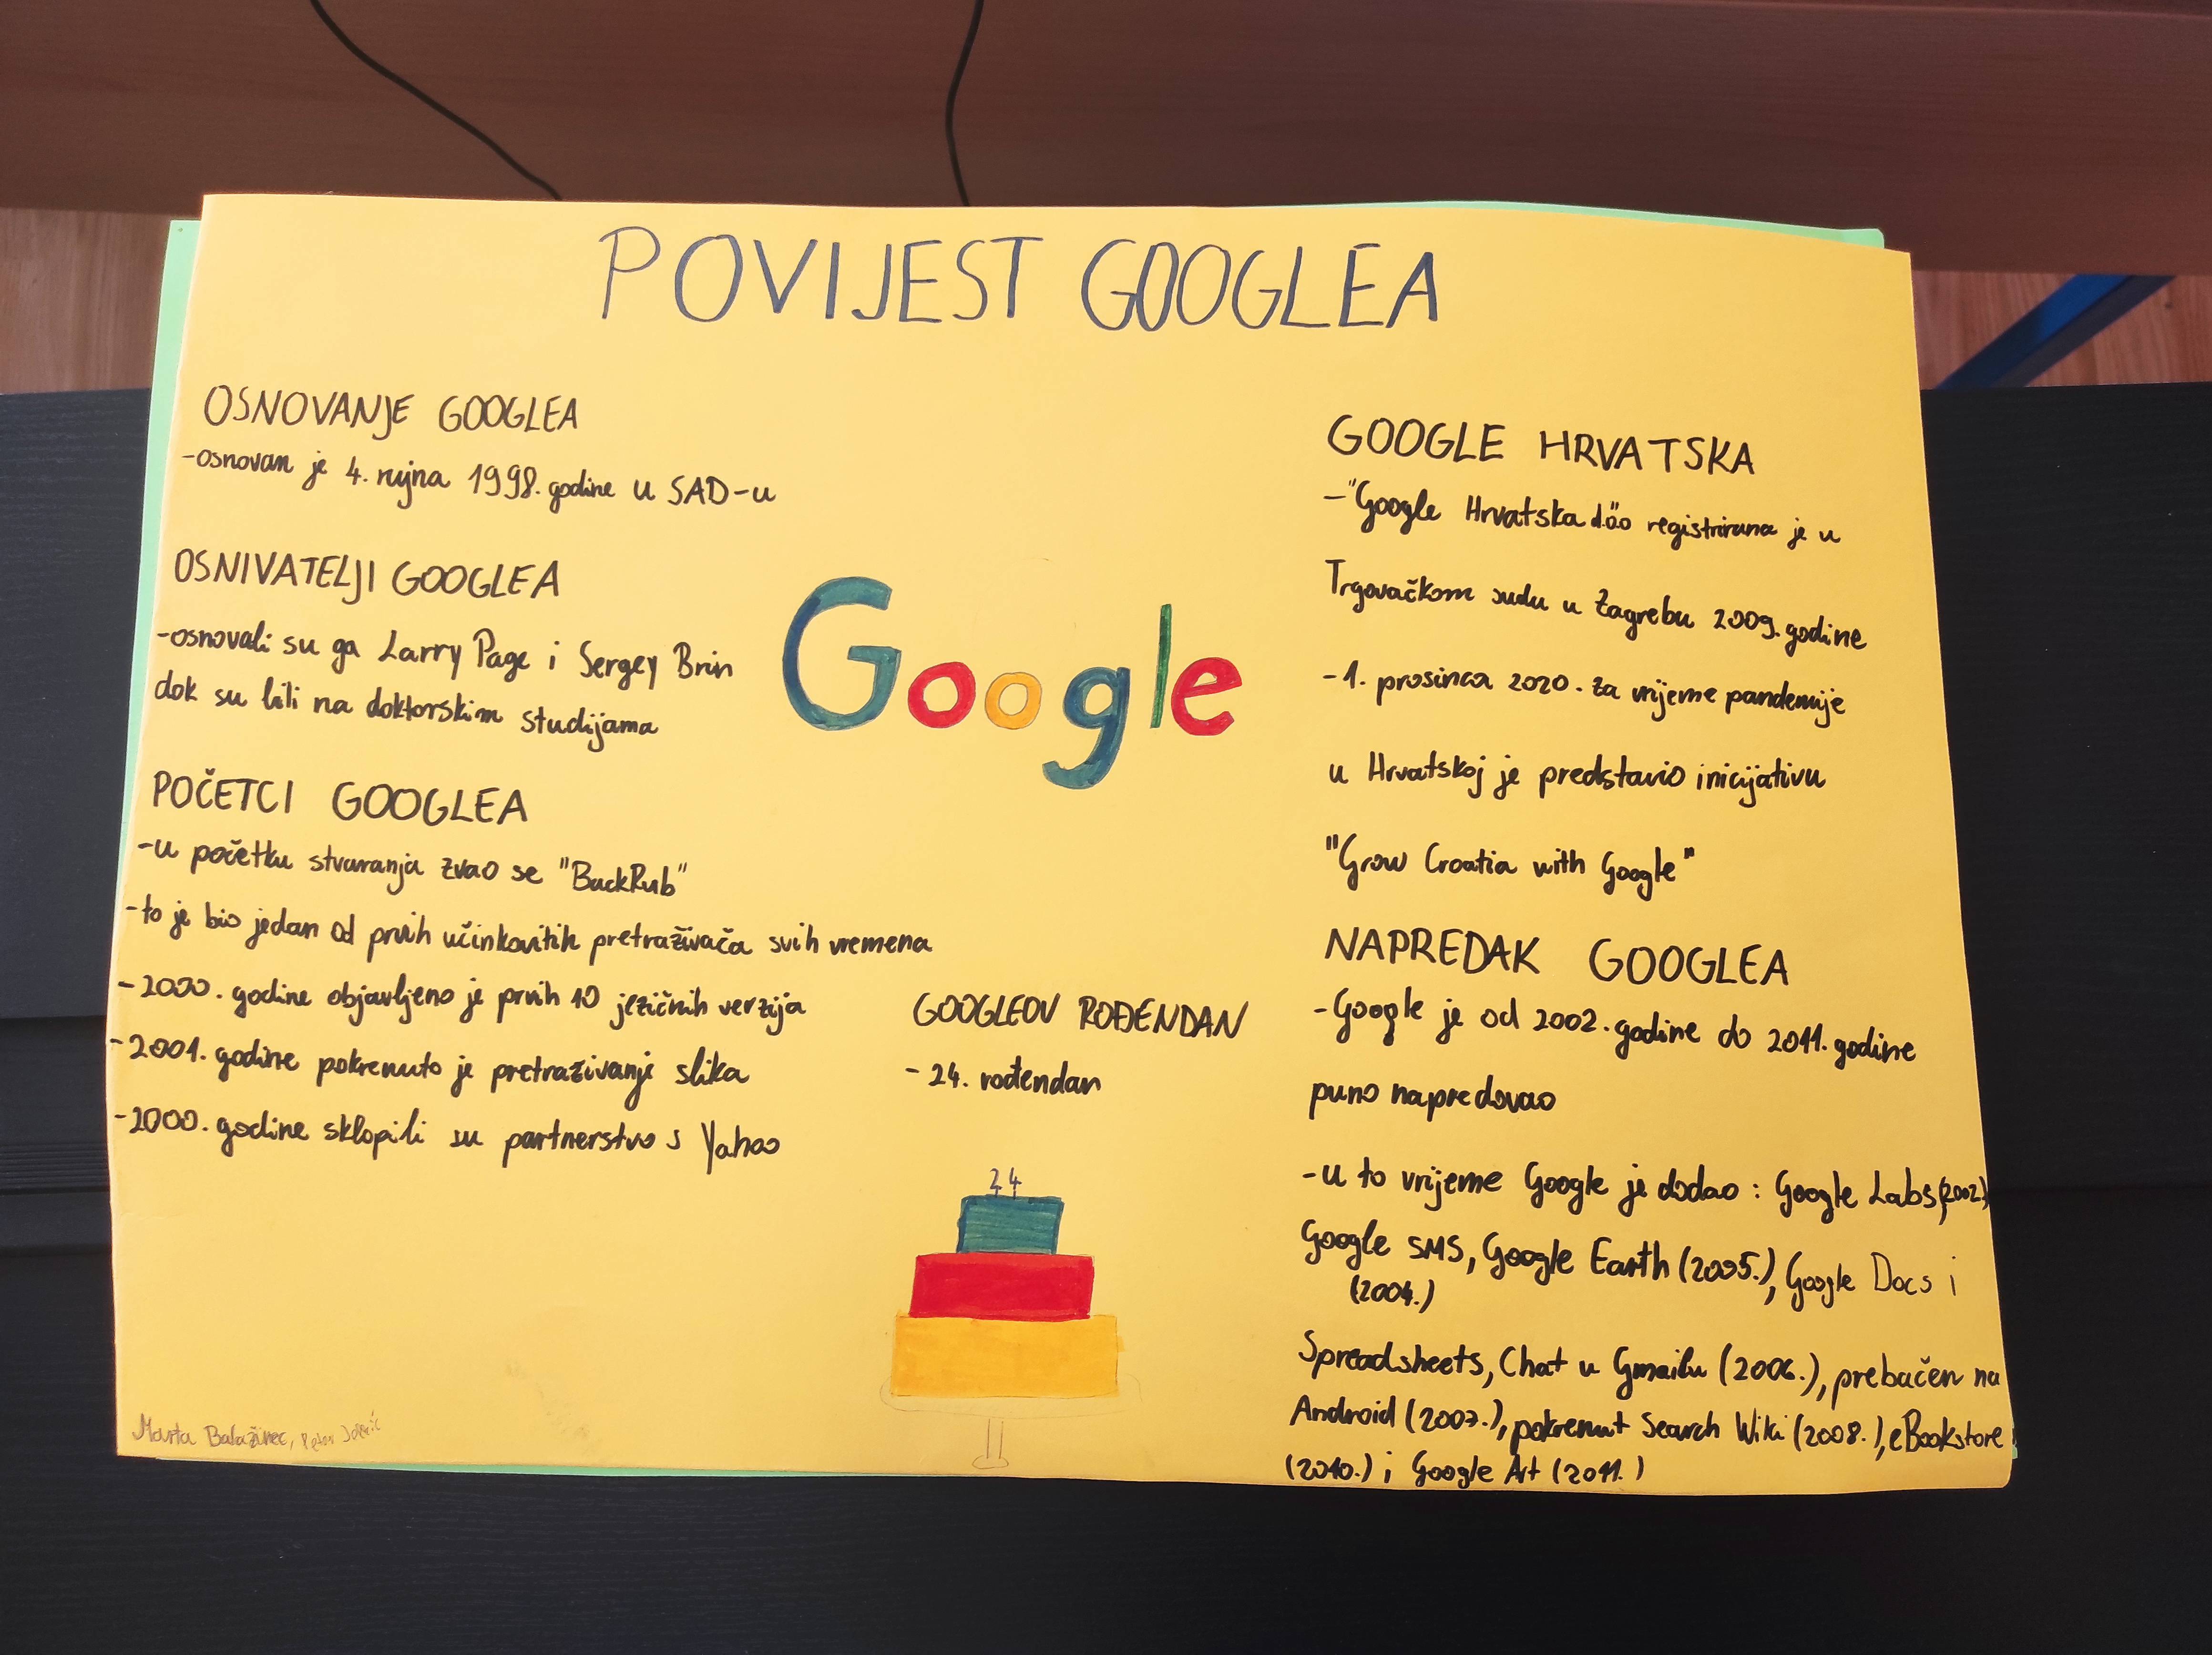 POVIJEST GOOGLEA
OSNOVANJE GOOGLEA
-osnovan je 4. rujna 1998. godine u SAD-u
OSNIVATELJI GOOGLEA
-osnovali su ga Larry Page i Sergey Brin
dok su bili na doktorskim studijama
POČETCI GOOGLEA
-u početku stvaranja zvao se "BackRub"
-to je bio jedan od prvih učinkovitih pretraživača svih vremena
-2000. godine objavljeno je prvih 10 jezičnih verzija
-2001. godine pokrenuto je pretraživanje slika
-2000. godine sklopili su partnerstvo s Yahoo
Google
GOOGLEOV ROĐENDAN
- 24. rođendan
24
GOOGLE HRVATSKA
-"Google Hrvatska d.o.o registrirana je u
Trgovačkom sudu u Zagrebu 2009. godine
-1. prosinca 2020. za vrijeme pandemije
u Hrvatskoj je predstavio inicijativu
"Grow Croatia with Google"
NAPREDAK GOOGLEA
-Google je od 2002. godine do 2011. godine
puno napredovao
-u to vrijeme Google je dodao: Google Labs (2002.)
Google SMS, Google Earth (2005.), Google Docs i
(2004.)
Spreadsheets, Chat u Gmailu (2006.), prebačen na
Android (2007.), pokrenut Search Wiki (2008.), eBookstore
(2010.) i Google Art (2011.)
Marta Balažinec, Petar